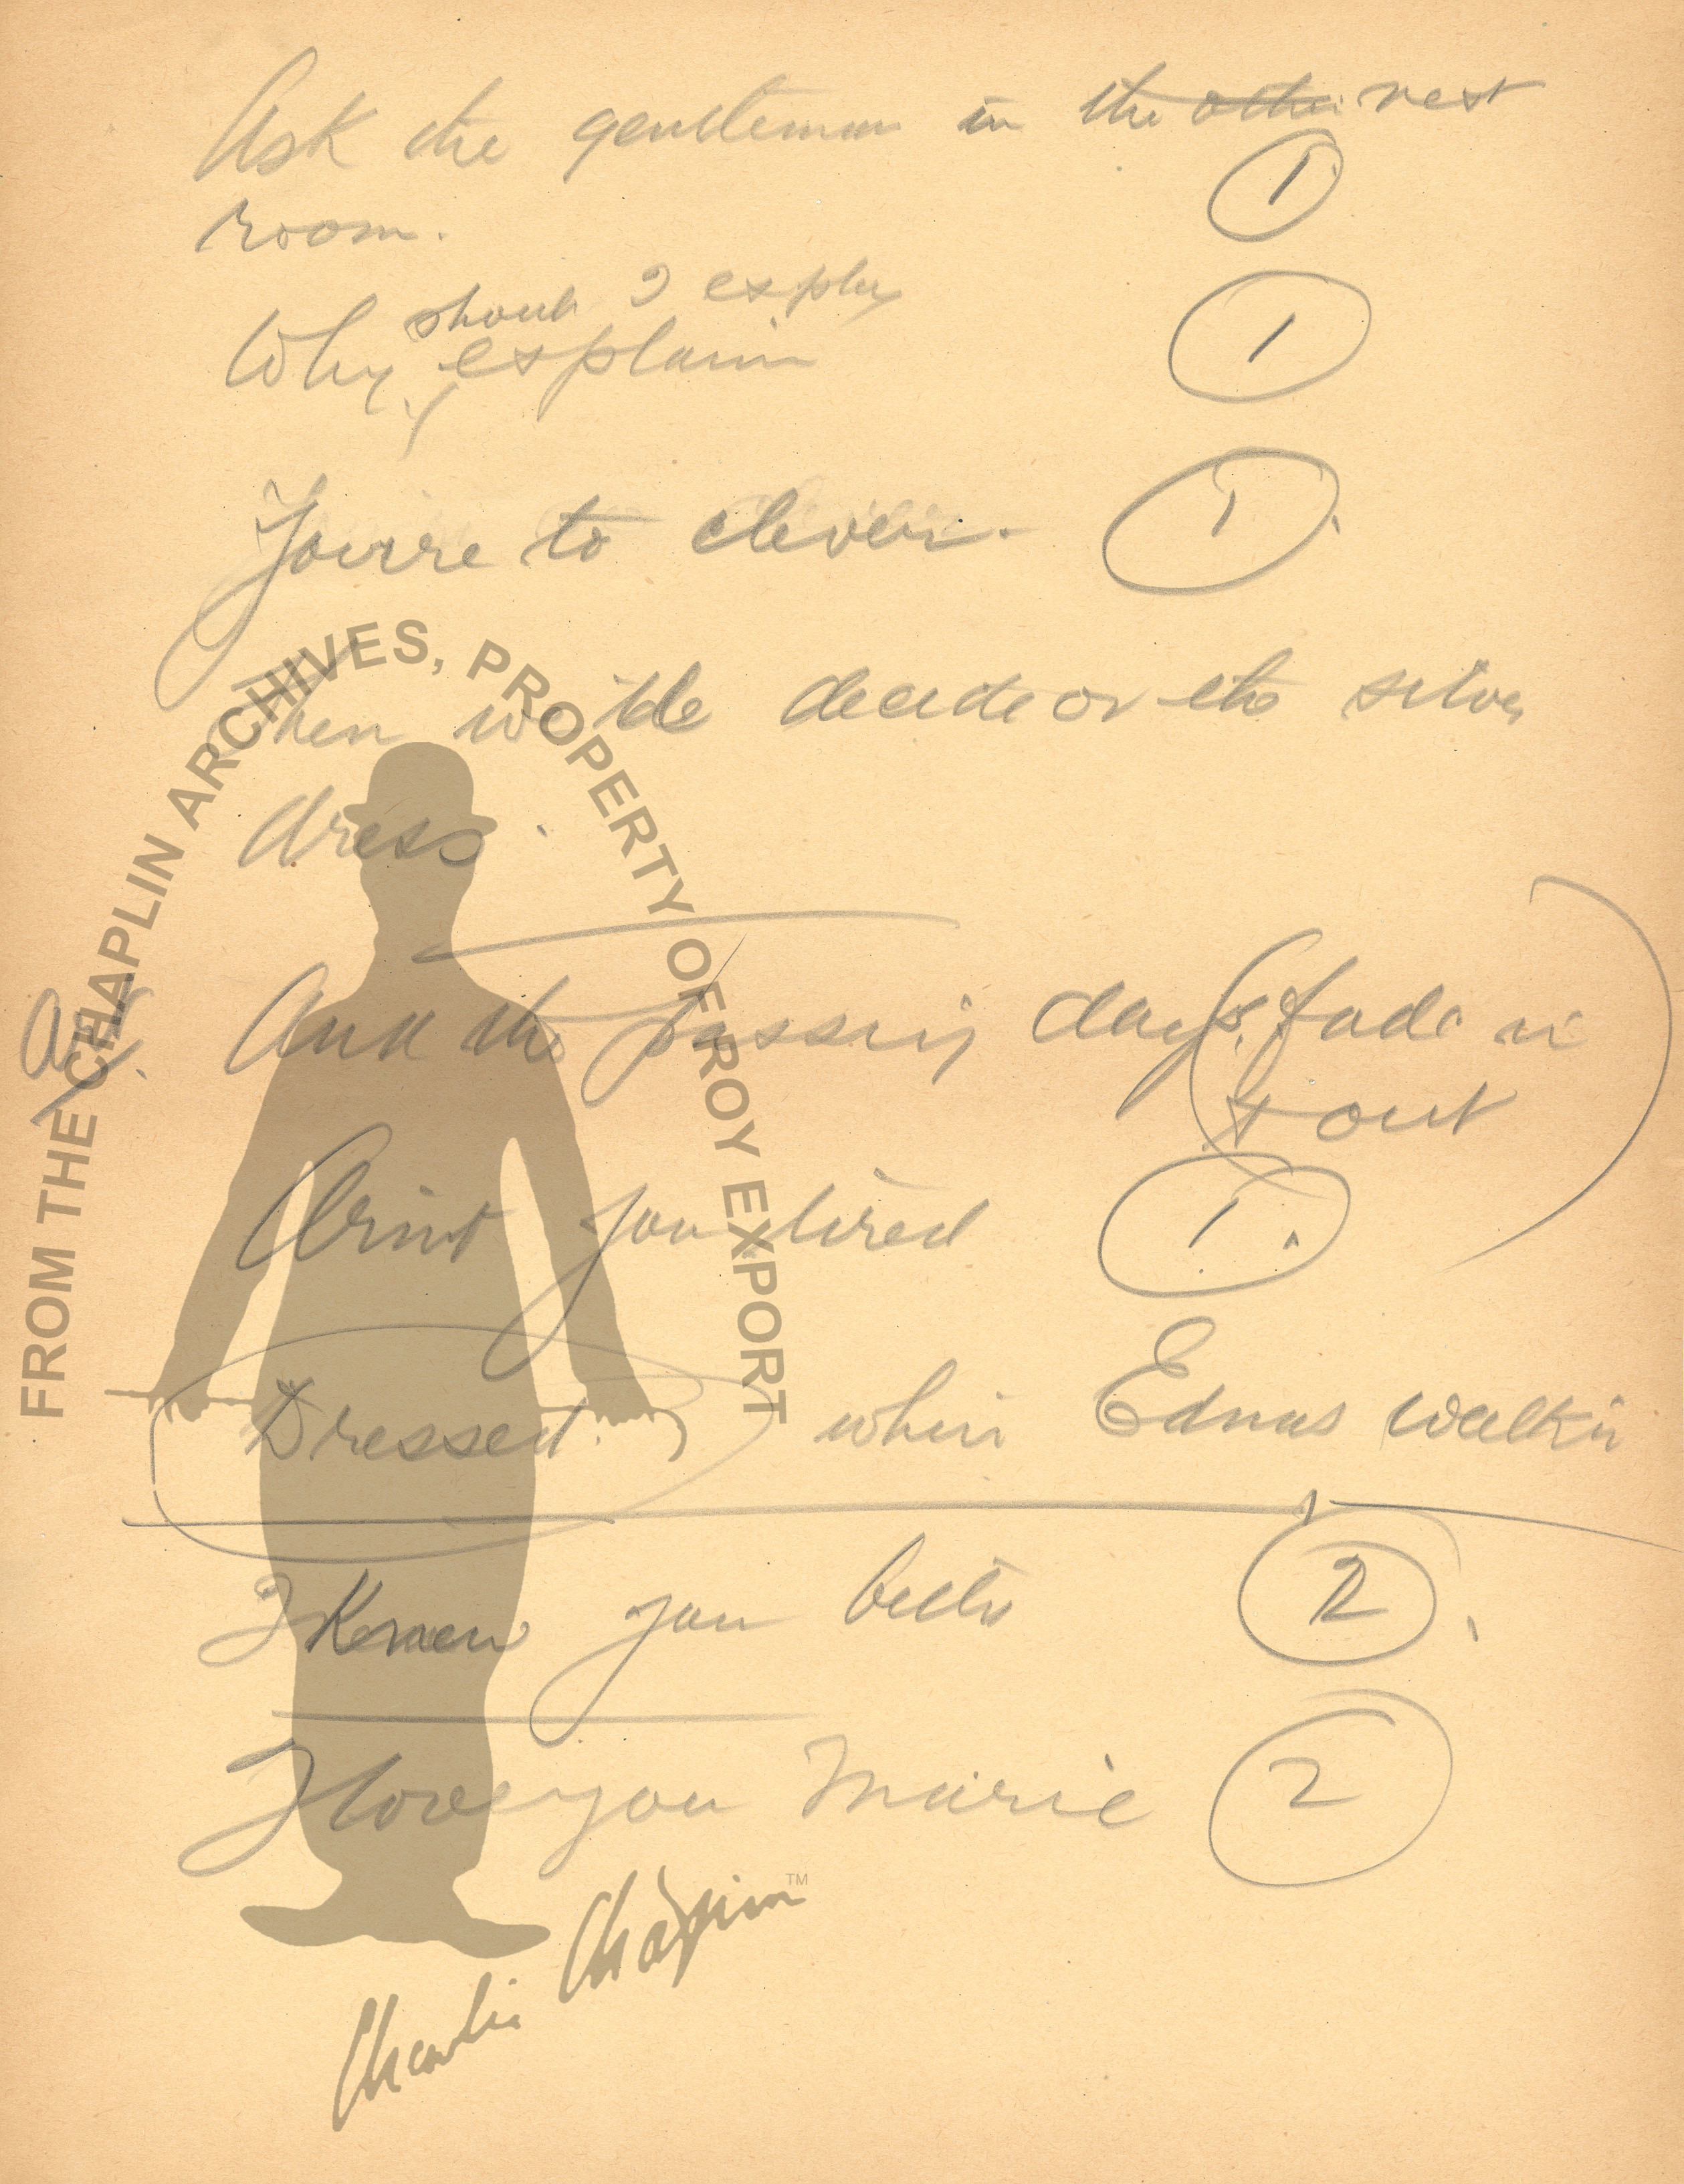 Ask the gentleman in the other next
room. 1
should I explain
Why explain 1
Yourre to clever. 1
Then we'lle decide on the silver
dress.
And the passing days. fade in
& out
Arint you tired 1.
Dressed. when Ednas walkin
I Knew you better 2.
I love you Marie 2
FROM THE CHAPLIN ARCHIVES, PROPERTY OF ROY EXPORT
Charlie Chaplin TM